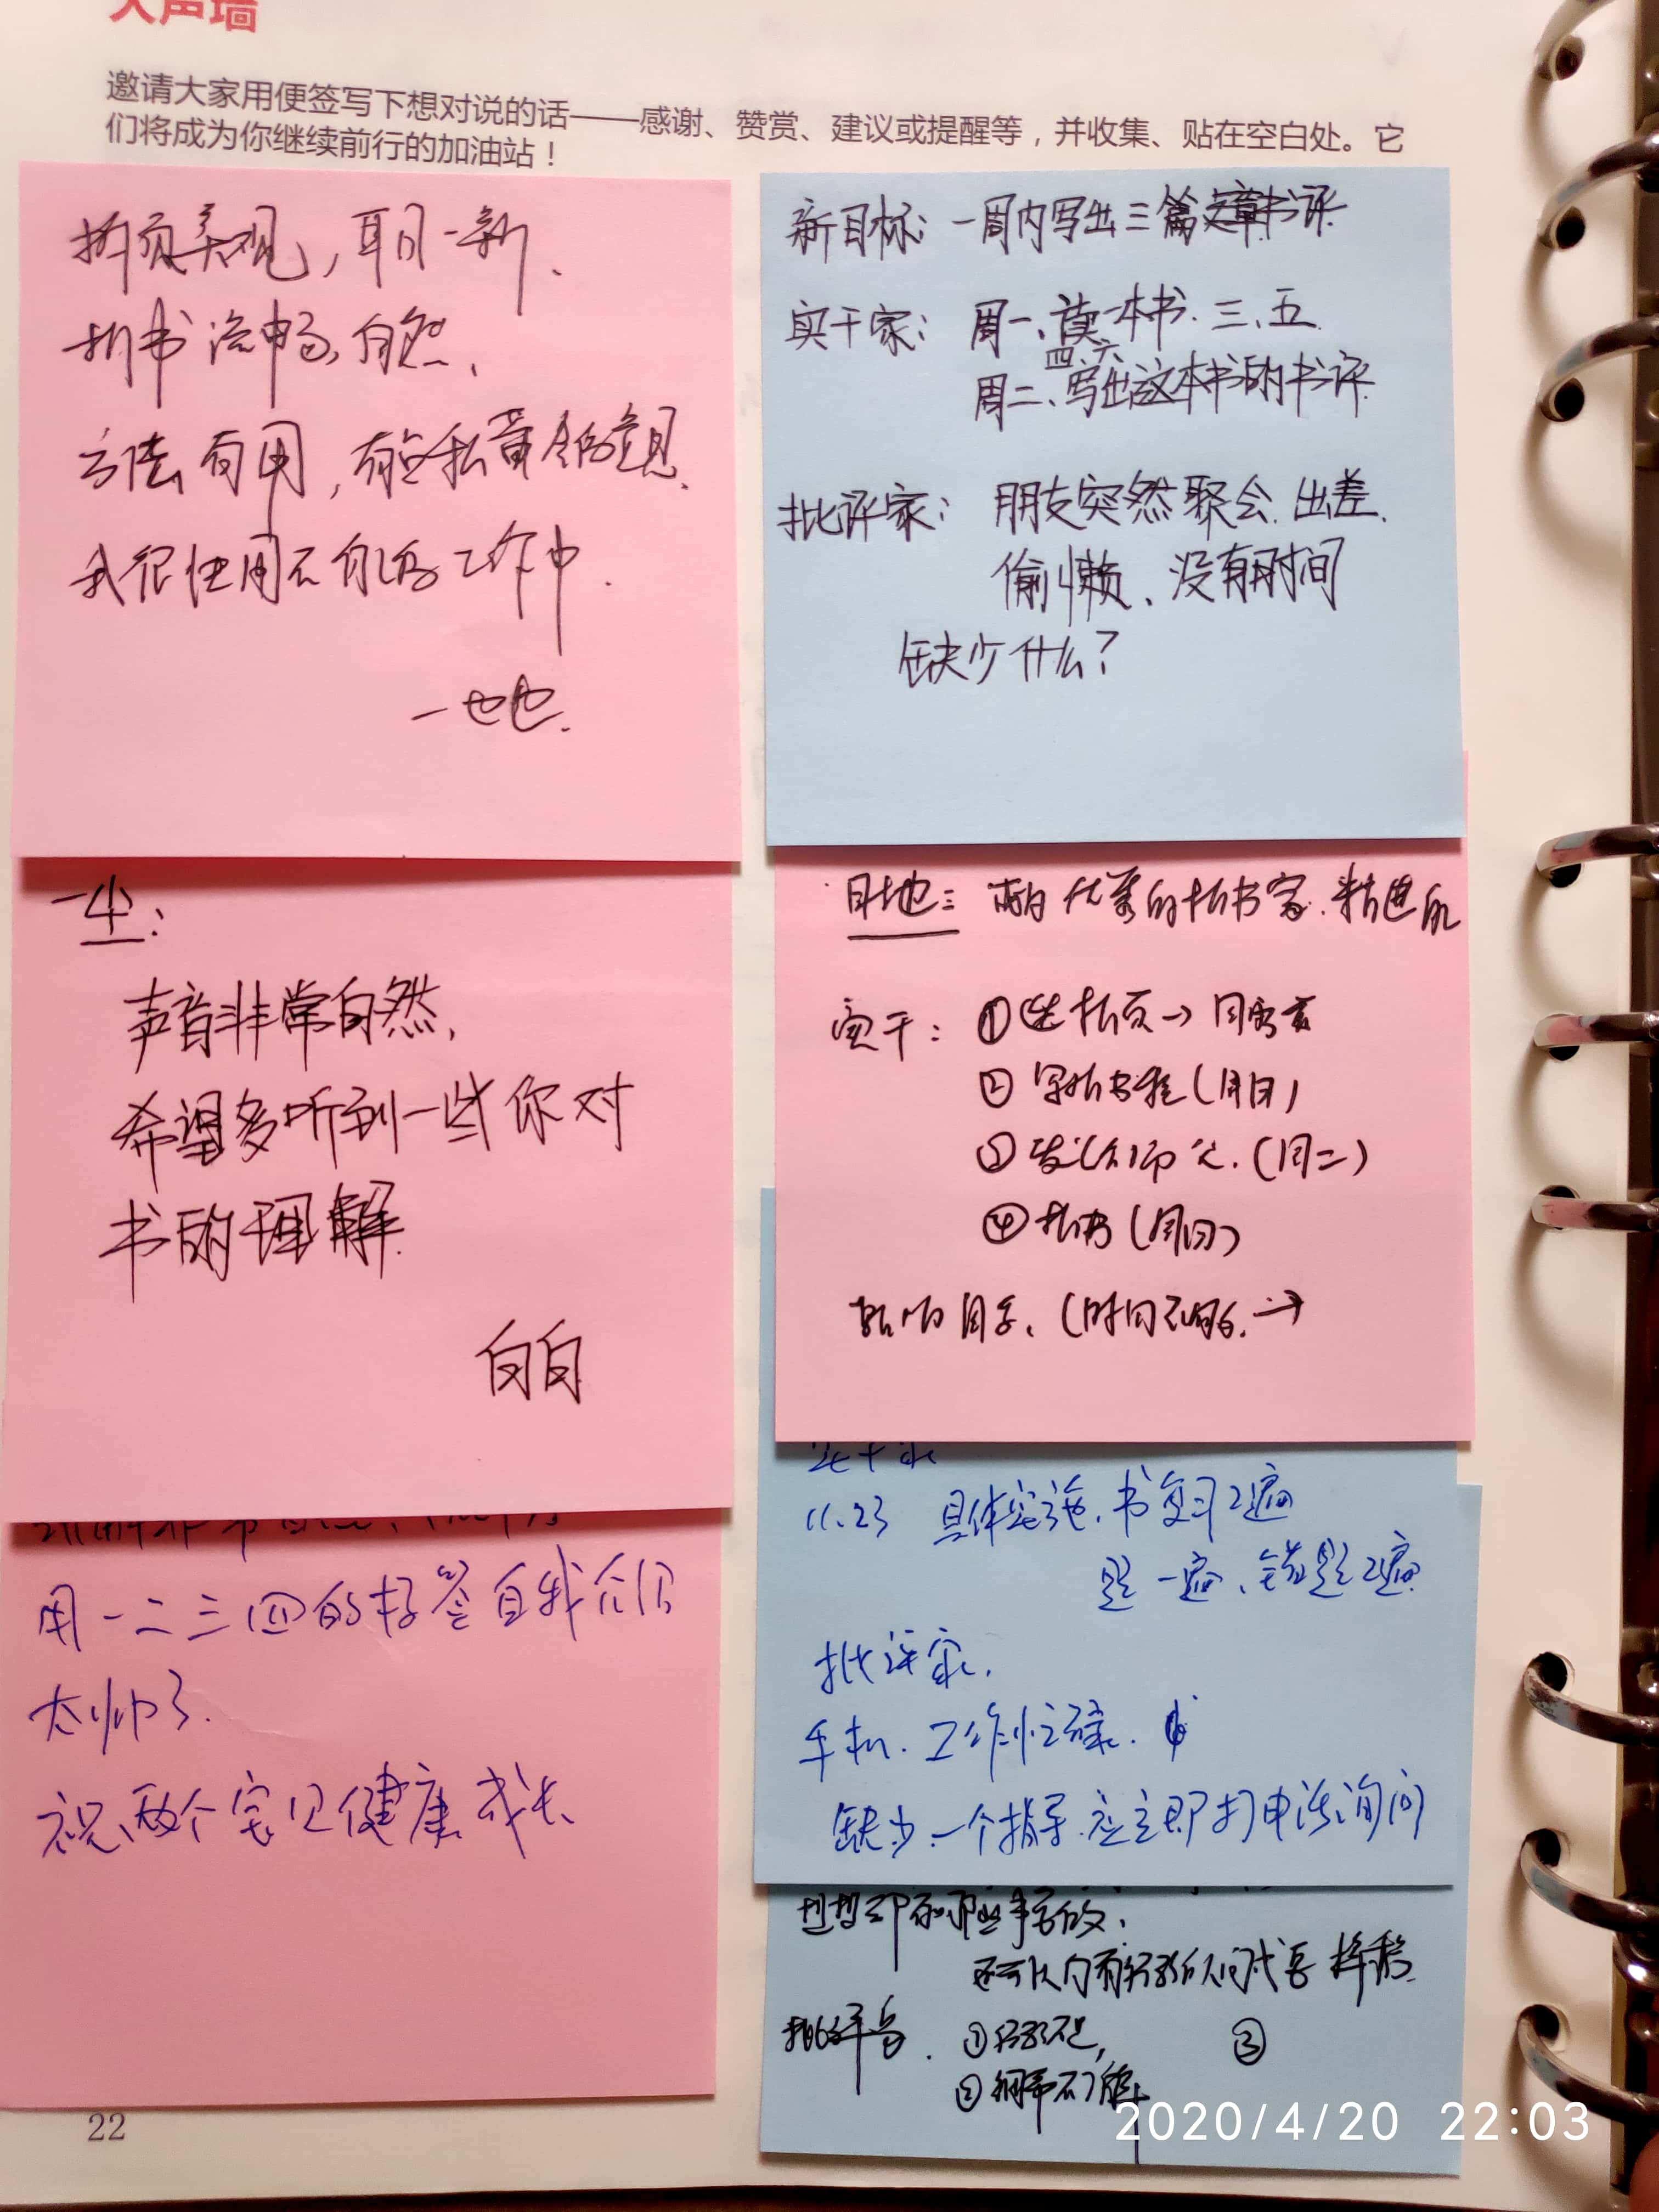 大声墙
邀请大家用便签写下想对说的话——感谢、赞赏、建议或提醒等，并收集、贴在空白处。它
们将成为你继续前行的加油站！
拆页美观，耳目一新.
拆书流畅,自然.
方法有用，
我很快用在自己的工作中.
一也也.
新目标：一周内写出三篇文章书评
实干家：周一、读一本书.三、五.
四、六
周二、写出这本书的书评
批评家：朋友突然聚会.出差.
偷懒、没有时间
缺少什么？
一尘：
声音非常自然,
希望多听到一些你对
书的理解.
白白
目地：优秀的拆书家.精进
实干：①选拆页→
②写拆书稿(周日)
③发给师父.(周二)
④拆书(周日)
(时间不够.→
实干家
11.23 具体实施.书复习2遍
题一遍、错题2遍
批评家.
手机.工作忙碌.
缺少一个指导.应立即打电话询问
用一二三四的标签自我介绍
太帅了.
祝两个宝贝健康成长
想想
①
②
③
22
2020/4/20 22:03